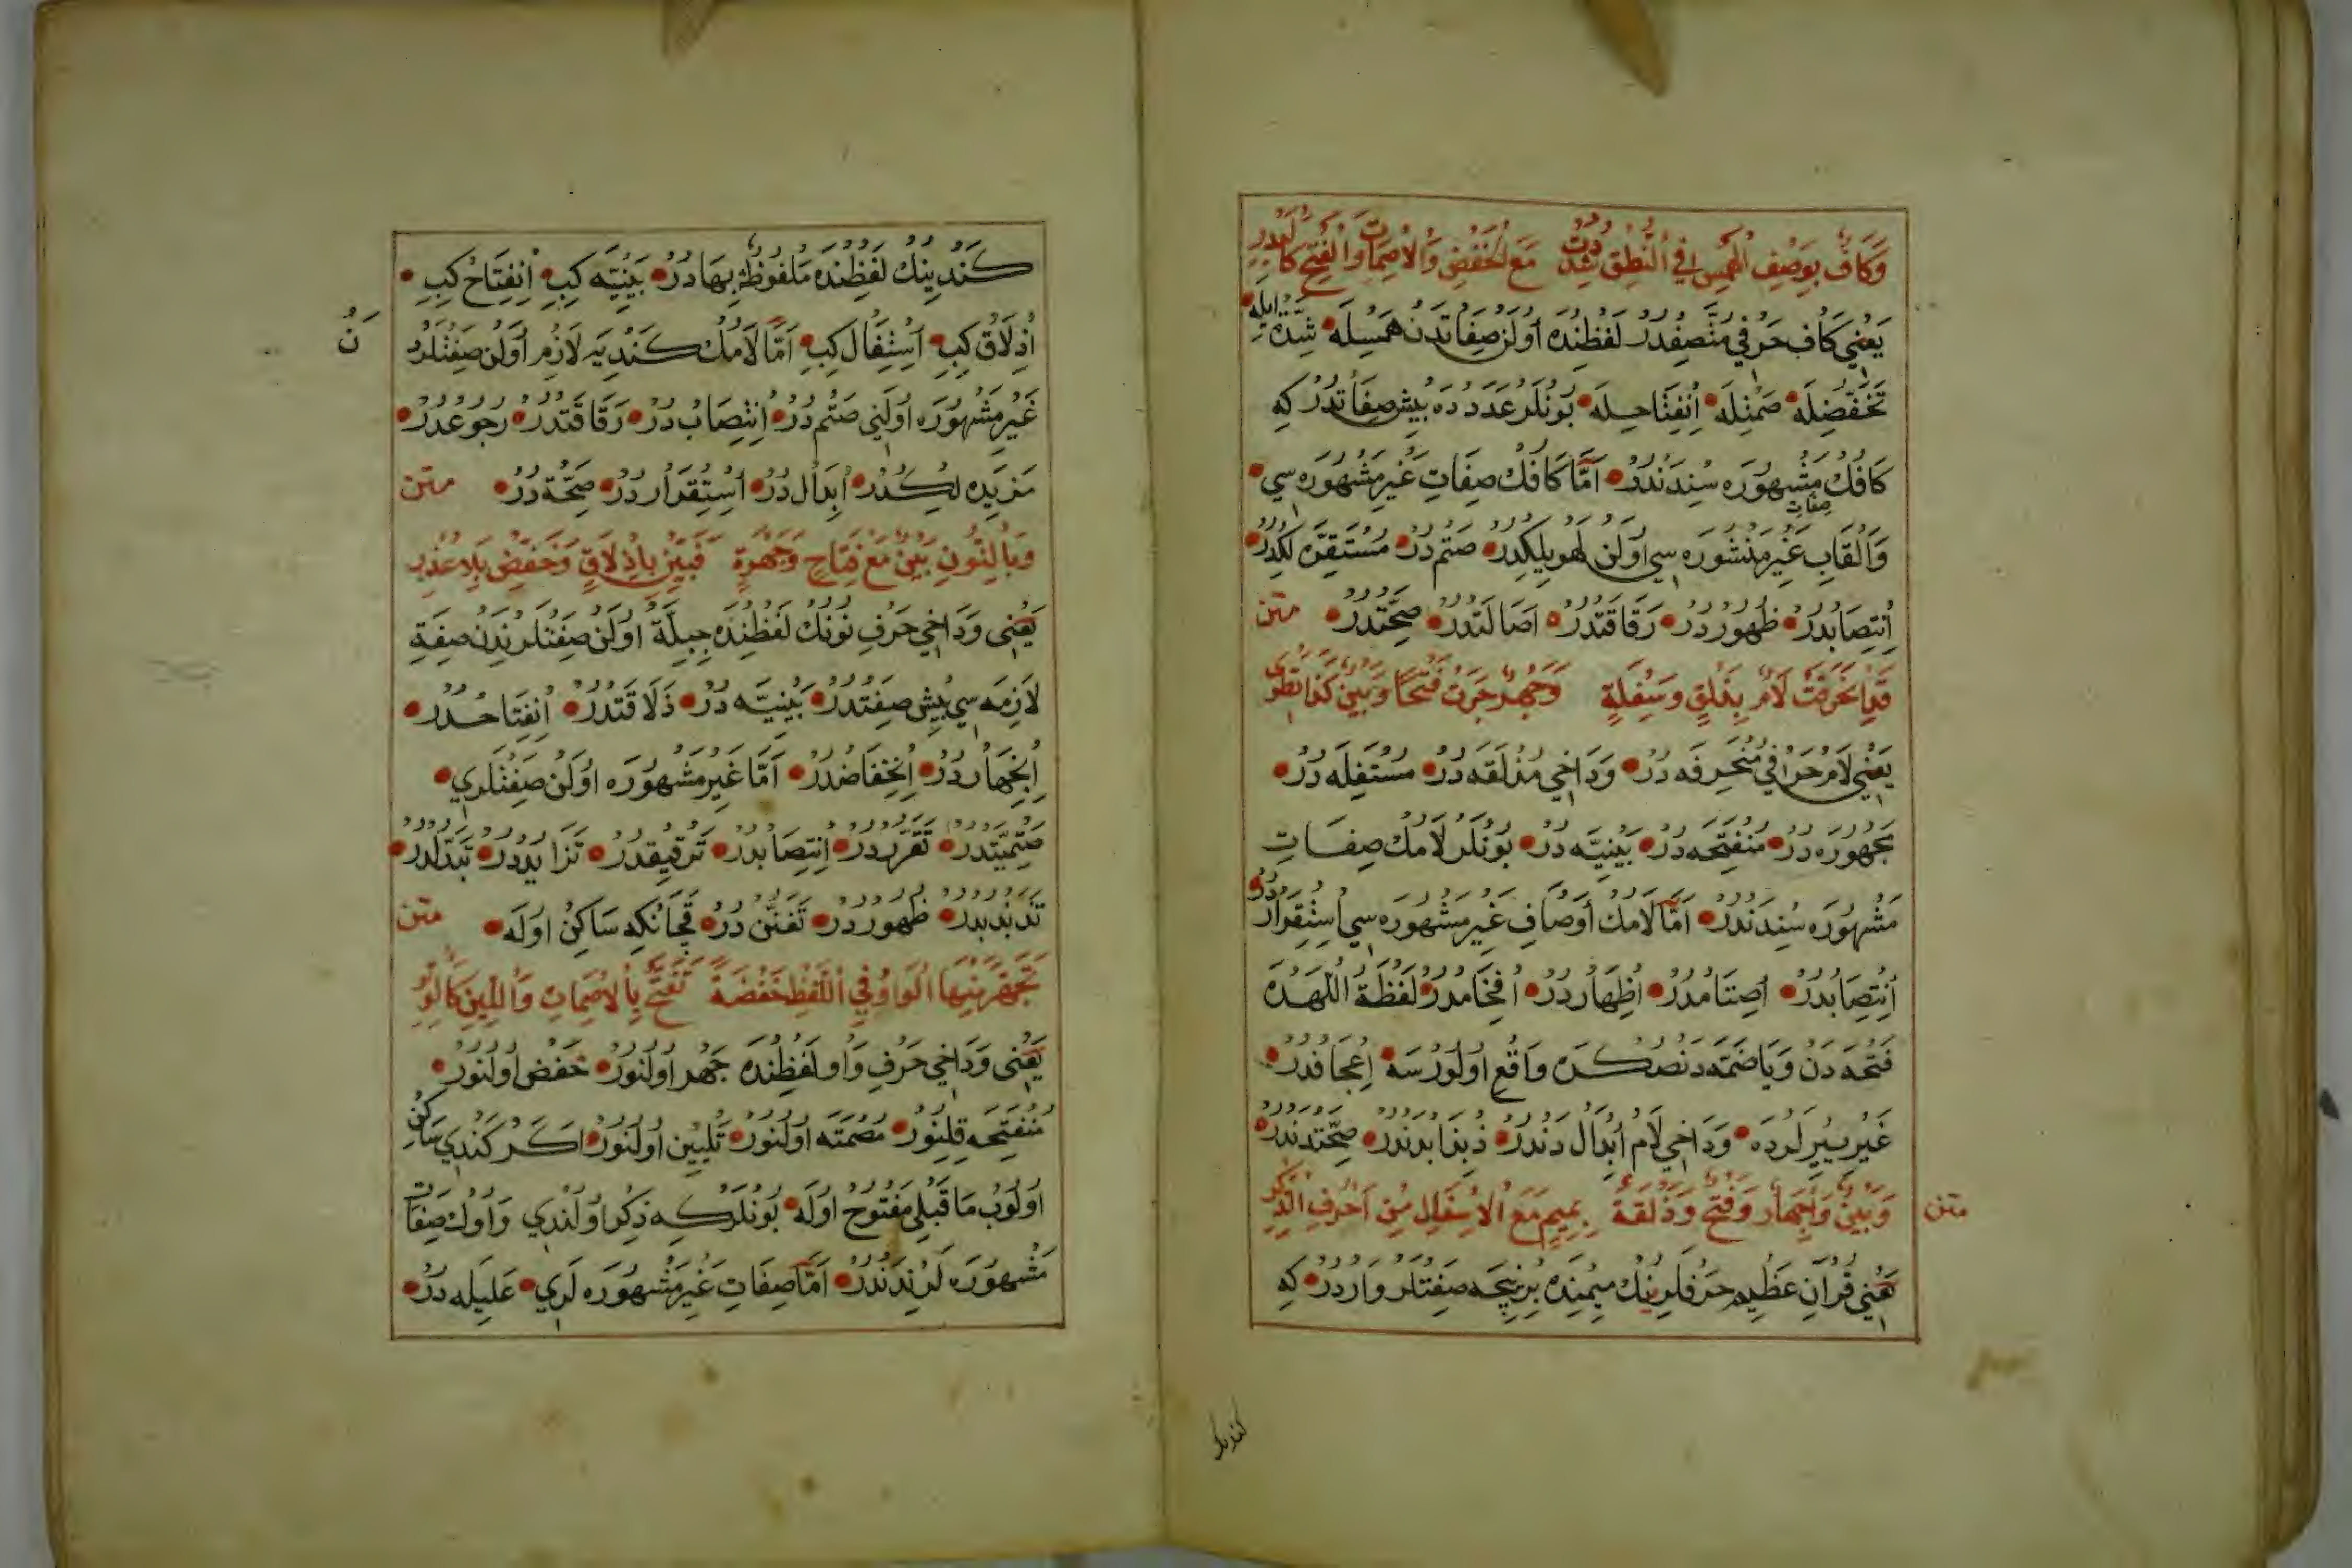 وَكَافٌ بِوَصْفِ الْهَمْسِ فِي النُّطْقِ شُدِّدَتْ مَعَ الْخَفْضِ وَالْاِصْمَاتِ وَالْفَتْحِ كَالْبَدْرِ
يَعْنِي كَاف حَرْفِي مُتَّصِفْدُرْ لَفْظِنْدَه اُولَنْ صِفَاتْدَنْ هَمْسِلَه شِدَّة اِيلَه
تَخَفُّضِلَه صَمْتِلَه اِنْفِتَاحِلَه بُونْلَرْ عَدَدْدَه بِيشْ صِفَاتْدُرْ كِه
كَافِكْ صِفَاتِ مَشْهُورَه سِنْدَنْدُرْ اَمَّا كَافِكْ صِفَاتِ غَيْرِ مَشْهُورَه سِي
وَاَلْقَابِ غَيْرِ مَنْشُورَه سِي اُولَنْ لهويلكدر صَتْمْ دُرْ مُسْتَقِرَّه لِكْدُرْ
اِنْتِصَابْدُرْ ظُهُورْدُرْ رَقَاقَتْدُرْ اَصَالَتْدُرْ صِحَّتْدُرْ متن
لَامٌ بِذَلْقٍ وَسُفْلَةٍ وَجَهْرٌ جَرَتْ فَتْحًا وَبَيْنَ
يَعْنِي لَامْ حَرْفِي مُنْحَرِفَه دُرْ وَدَاخِي مُذْلَقَه دُرْ مُسْتَفِلَه دُرْ
مَجْهُورَه دُرْ مُنْفَتِحَه دُرْ بَيْنِيَّه دُرْ بُونْلَرْ لَامِكْ صِفَاتِ
مَشْهُورَه سِنْدَنْدُرْ اَمَّا لَامِكْ اَوْصَافِ غَيْرِ مَشْهُورَه سِي اِسْتِقْرَارْدُرْ
اِنْتِصَابْدُرْ اِصْتَامْدُرْ اِظْهَارْدُرْ اِفْخَامْدُرْ لَفْظَةُ اللّٰهْدَه
فَتْحَه دَنْ وَيَا ضَمَّه دَنْصُكْرَه وَاقِعْ اُولُورْسَه اِعْجَافْدُرْ
غَيْرِ يِيرْلَرْدَه وَدَاخِي لَامْ اِبْدَالْ دَنْدُرْ ذبذابدندر صِحَّتْدَنْدُرْ
متن وَبَيْنٌ وَاِجْهَارٌ وَفَتْحٌ وَذَلْقَةٌ بِمِيمٍ مَعَ الْاِسْفَالِ مِنْ اَحْرُفِ الذِّكْرِ
يَعْنِي قُرْآنِ عَظِيمْ حَرْفْلَرِينِكْ مِيمِنْدَه بُرْنِيچَه صِفَتْلَرْ وَارْدُرْ كِه
كندينك
كَنْدِينِكْ لَفْظِنْدَه مَلْفُوظٌ بِهَا دُرْ بَيْنِيَّه كِبِي اِنْفِتَاحْ كِبِي
اِذْلَاقْ كِبِي اِسْتِفَالْ كِبِي اَمَّا لَامِكْ كَنْدِيَه لَازِمْ اُولَنْ صِفَتْلَرْ
نُ
غَيْرِ مَشْهُورَه اُولَنِي صَتْمْ دُرْ اِنْتِصَابْ دُرْ رَقَاقَتْدُرْ رُجُوعْدُرْ
مَزِيدَه لِكْدُرْ اِبْدَالْ دُرْ اِسْتِقْرَارْدُرْ صِحَّةْ دُرْ متن
وَبِالنُّونِ بَيْنٌ مَعَ فِتَاحٍ وَجَهْرَةٍ فَبَيِّنْ بِاِذْلَاقٍ وَخَفْضٍ بِلَا عُذْرِ
يَعْنِي وَدَاخِي حَرْفِ نُونِكْ لَفْظِنْدَه جِبِلَّة اُولَنْ صِفَتْلَرِنْدَنْ صِفَةِ
لَازِمَه سِي بِيشْ صِفَتْدُرْ بَيْنِيَّه دُرْ ذَلَاقَتْدُرْ اِنْفِتَاحْدُرْ
اِنْجِهَارْدُرْ اِنْخِفَاضْدُرْ اَمَّا غَيْرِ مَشْهُورَه اُولَنْ صِفَتْلَرِي
صَتْمِيَّتْدُرْ تَقَرُّرْدُرْ اِنْتِصَابْدُرْ تَرْقِيقْدُرْ تَزَايُدْدُرْ تَبَدُّلْدُرْ
تَذَبْذُبْدُرْ ظُهُورْدُرْ تَفَنُّنْ دُرْ قَچَانْكِه سَاكِنْ اُولَه متن
تَجَهَّرَ مِنْهَا الْوَاوُ فِي اللَّفْظِ خَفْضَةً تَفَتَّحْ بِالْاِصْمَاتِ وَاللِّينِ كَالَوْ
يَعْنِي وَدَاخِي حَرْفِ وَاوْ لَفْظِنْدَه جَهْرْ اُولُنُورْ خَفْضْ اُولُنُورْ
مُنْفَتِحَه قِلِنُورْ مُصْمَتَه اُولُنُورْ تَلْيِينْ اُولُنُورْ اَكَرْ كَنْدِي سَاكِنْ
اُولُوبْ مَا قَبْلِي مَفْتُوحْ اُولَه بُونْلَرْكِه ذِكْرْ اُولُنْدِي وَاوِكْ صِفَاتِ
مَشْهُورَه لَرِنْدَنْدُرْ اَمَّا صِفَاتِ غَيْرِ مَشْهُورَه لَرِي عَلِيلَه دُرْ